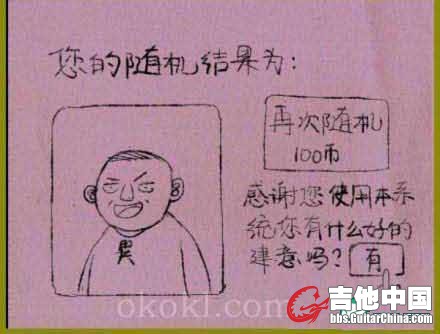 您的随机结果为:
再次随机
100币
感谢您使用本系
统您有什么好的
建意吗? 有
吉他中国
bbs.GuitarChina.com